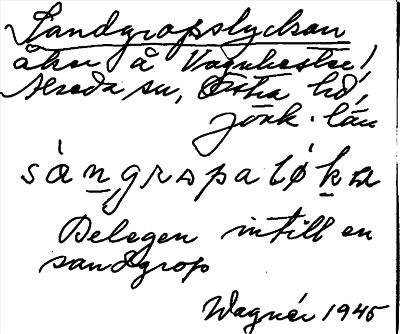 Sandgropslyckan
åker å Vagnhester,
Alseda sn, Östra hd,
Jönk. län
sángropalø̀ka
Belägen intill en
sandgrop
Wagnér 1945